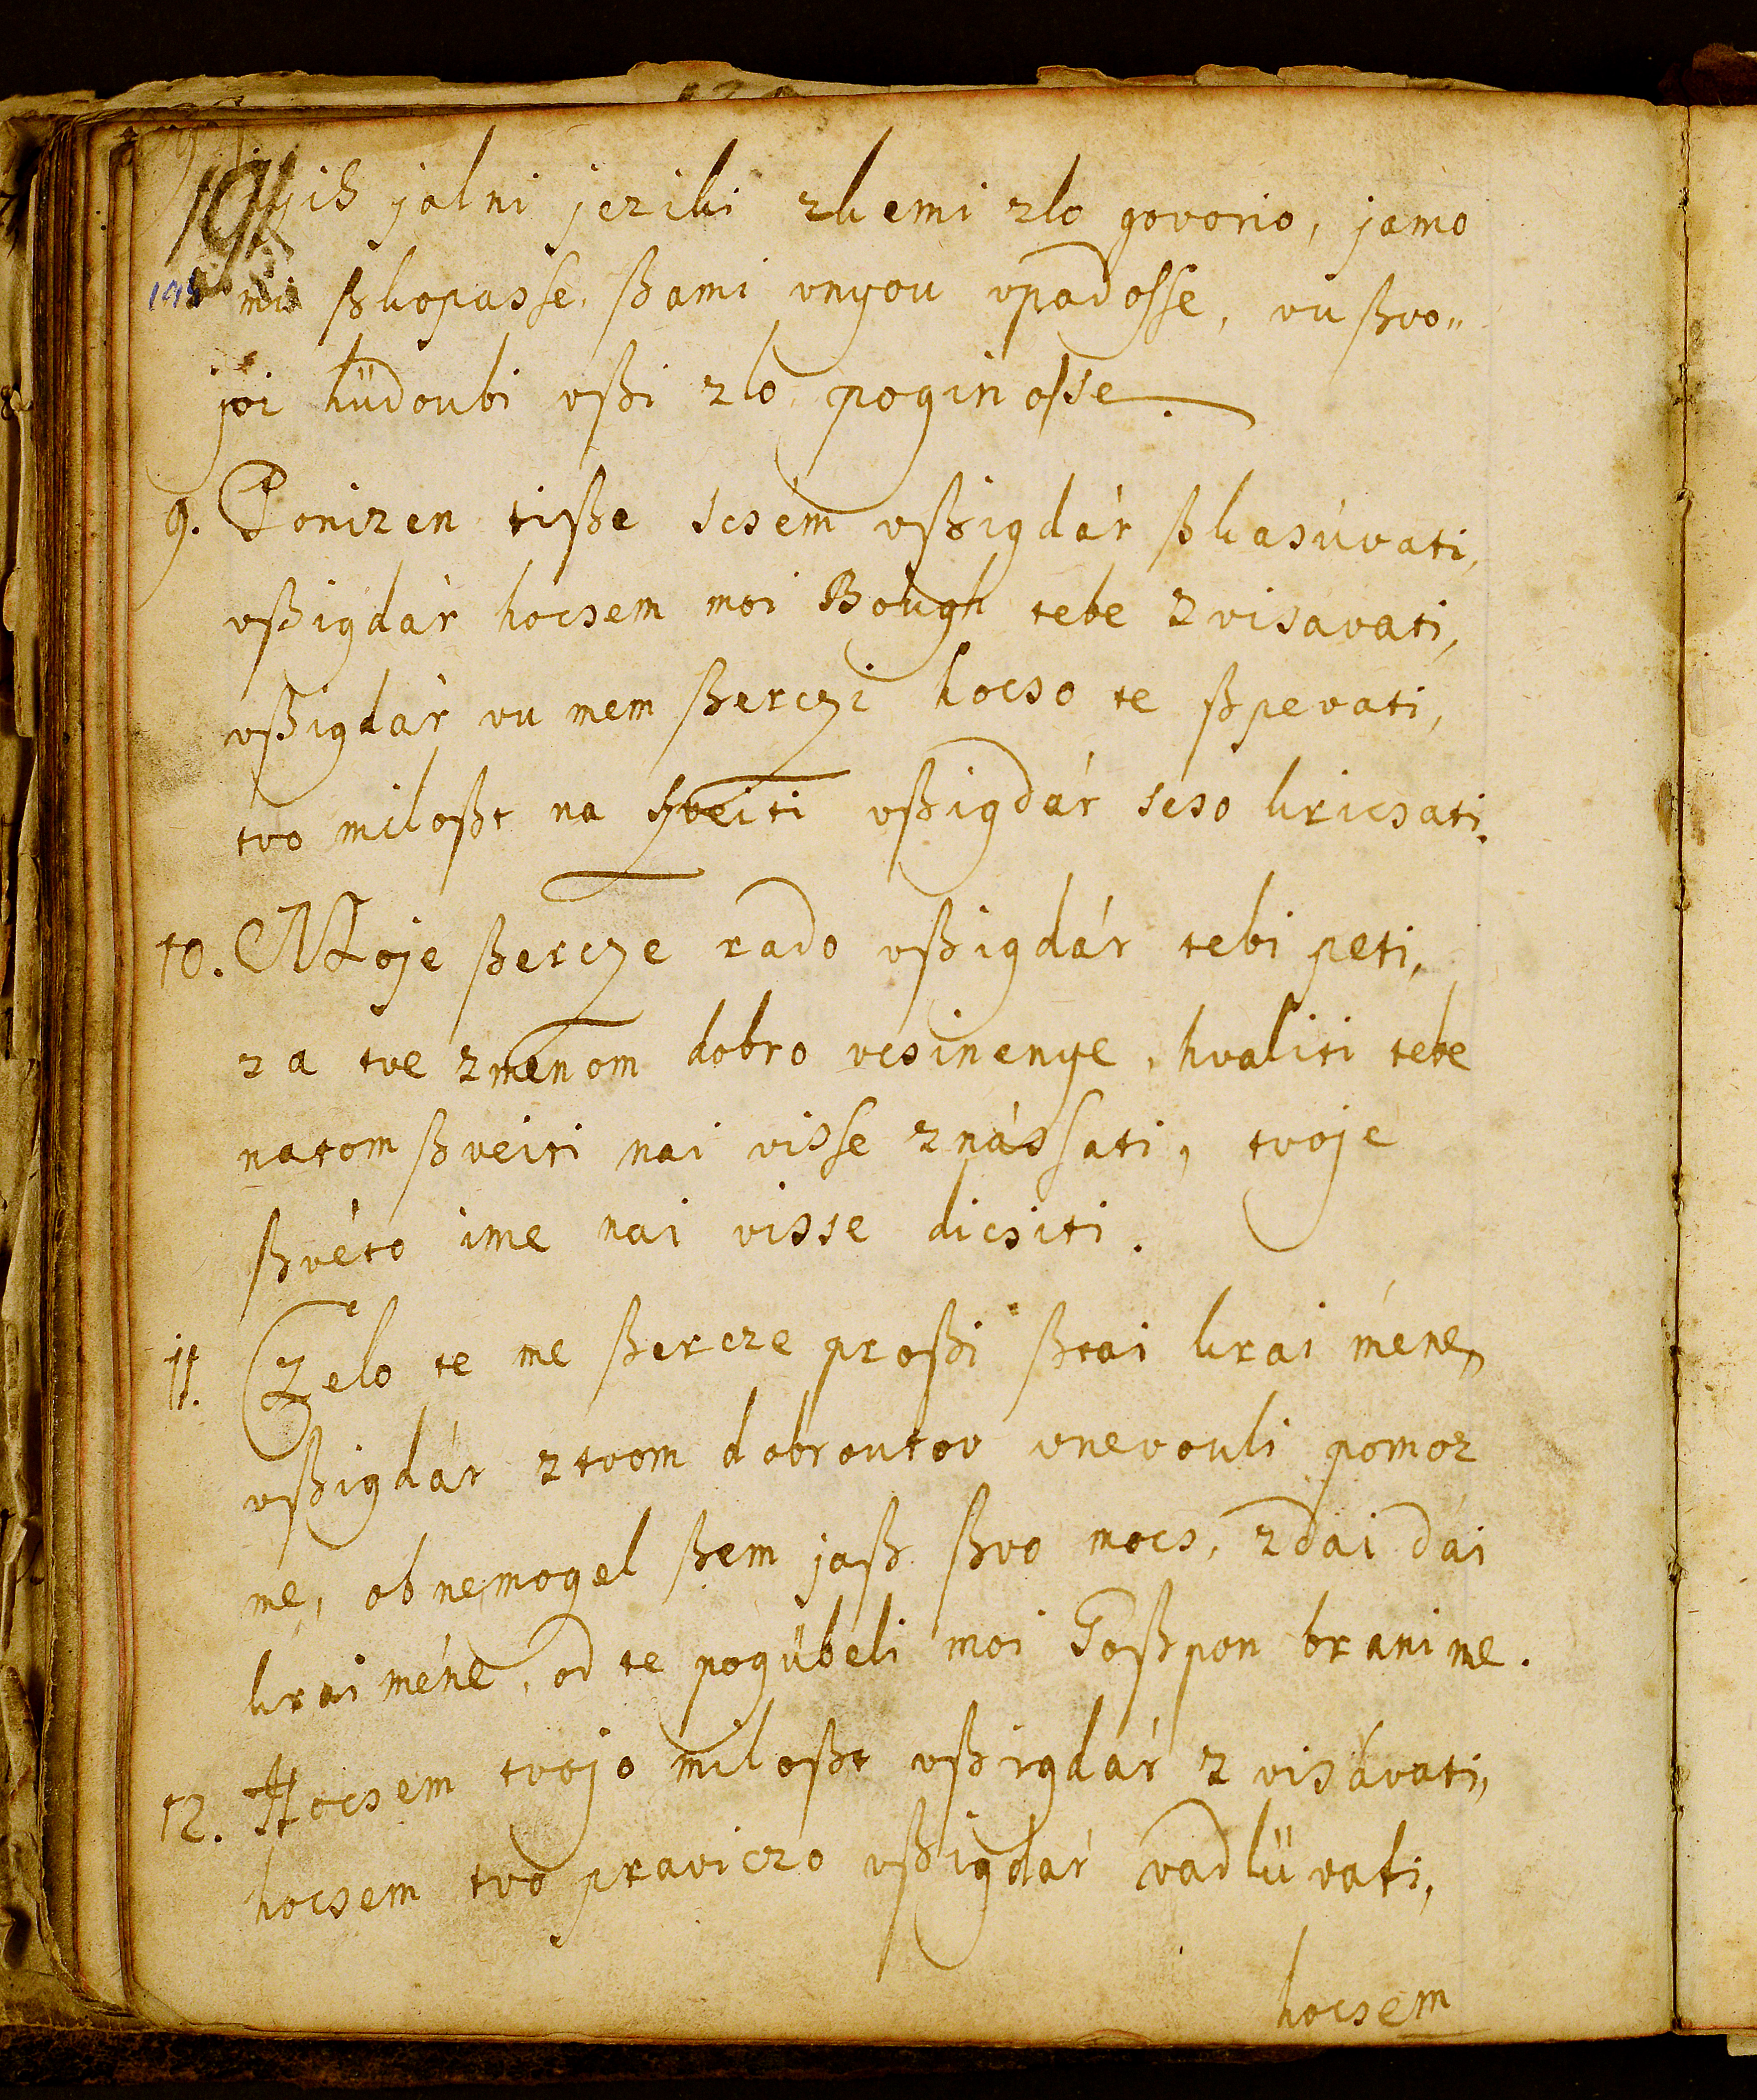 191
nyih jalni jeziki zkemi zlo govorio, jamo
mi ßkopasse, ßami vnyou vpadosse, vu ßvo„
joi hüdoubi vßi zlo poginosse.
9. Ponizen tiße scsém vßigdár ßkasúvati,
vßigdár hocsem moi Bough tebe zvisávati,
vßigdár vu mem ßerczi hocso te ßpevati,
tvo miloßt na ßveiti vßigdár scso kricsati.
10. Moje ßercze rado vßigdár tebi peti,
za tve zmenom dobro vcsinenye, hvaliti tebe
natom ßveiti nai visse znássati, tvoje
ßvéto ime nai visse dicsiti.
11. Zelo te me ßercze proßi ßtai krai méne,
vßigdár ztvom dobroutov vnevouli pomoz
me, obnemogel ßem jaß ßvo mocs, zdai dai
krai méne, od te pogübeli moi Goßpon brani me.
12. Hocsem tvojo miloßt vßigdár zvisávati,
hocsem tvo praviczo vßigdár vadlüvati,
hocsem